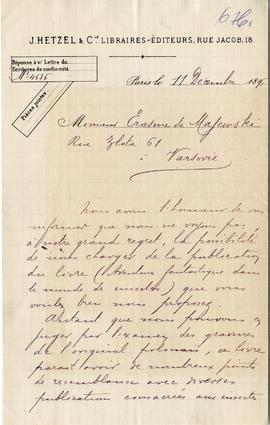 J. HETZEL & Cie, LIBRAIRES-ÉDITEURS, RUE JACOB, 18.
Réponse à v/ Lettre du
Ecritures de conformité
No 4636
Pièces jointes
Paris le 11 Décembre 189
Monsieur Erasme de Majewski
Rue Zlota 61
à Varsovie
Nous avons l'honneur de vous
informer que nous ne voyons pas
à notre grand regret, la possibilité
de nous charger de la publication
du livre (Aventure fantastique dans
le monde des insectes) que vous
voulez bien nous proposer.
Autant que nous pouvons en
juger par l'examen des gravures
de l'original polonais, ce livre
parait avoir de nombreux points
de ressemblance avec diverses
publications consacrées aux insectes